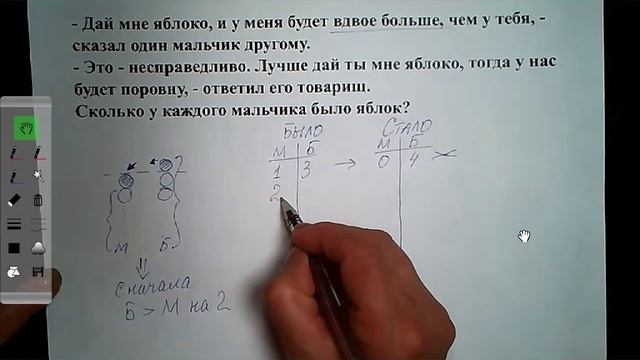 - Дай мне яблоко, и у меня будет вдвое больше, чем у тебя, -
сказал один мальчик другому.
- Это - несправедливо. Лучше дай ты мне яблоко, тогда у нас
будет поровну, - ответил его товарищ.
Сколько у каждого мальчика было яблок?
Было Стало
М Б М Б
1 3 → 0 4
2
М Б
Сначала
Б > М на 2